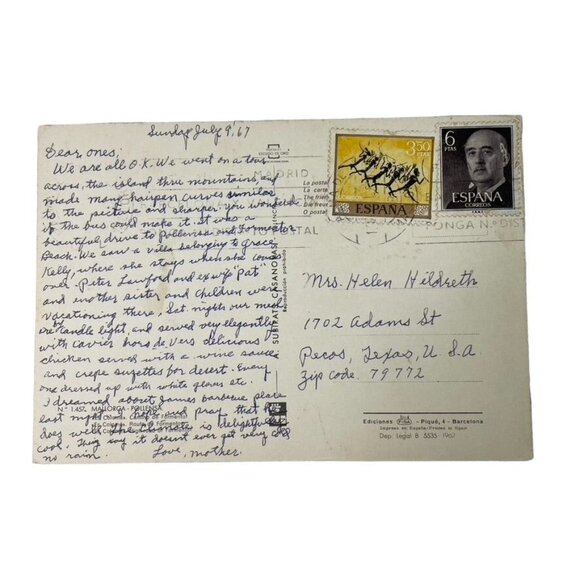 Sunday July 9, '67
Dear ones,
We are all O.K. We went on a tour
across, the island thru mountains
made many hairpen curves similar
to the picture and sharper you wondered
if the bus could make it. It was a
beautiful drive to Pollensa and Formentor
Beach. We saw a villa belonging to Grace
Kelly, where she stays when she comes
over. Peter Lawford and ex wife "Pat"
and another sister and children were
vacationing there, Sat. nights our meals
are candle light, and served very elegantly
with cavier hors de, vers delicious
chicken served with a wine sauce
and crepe suzettes for desert. Every
one dressed up with white gloves etc.
I dreamed about James barbeque place
last night. I hope and pray that he
does well. The climate is delightfully
cool. They say it doesnt ever get very cold
no rain. Love, mother.
N.° 1.457. MALLORCA - POLLENSA
SUBIRATS CASANOVAS
Reproducción prohibida
MADRID
POSTAL
3,50
PTAS
ESPAÑA
6
PTAS
ESPAÑA
CORREOS
PONGA N.° DIST
Mrs. Helen Hildreth
1702 Adams St
Pecos, Texas, U.S.A.
Zip code. 79772
Ediciones FISA - Piqué, 4 - Barcelona
Impreso en España/Printed in Spain
Dep. Legal B 5535 - 1967